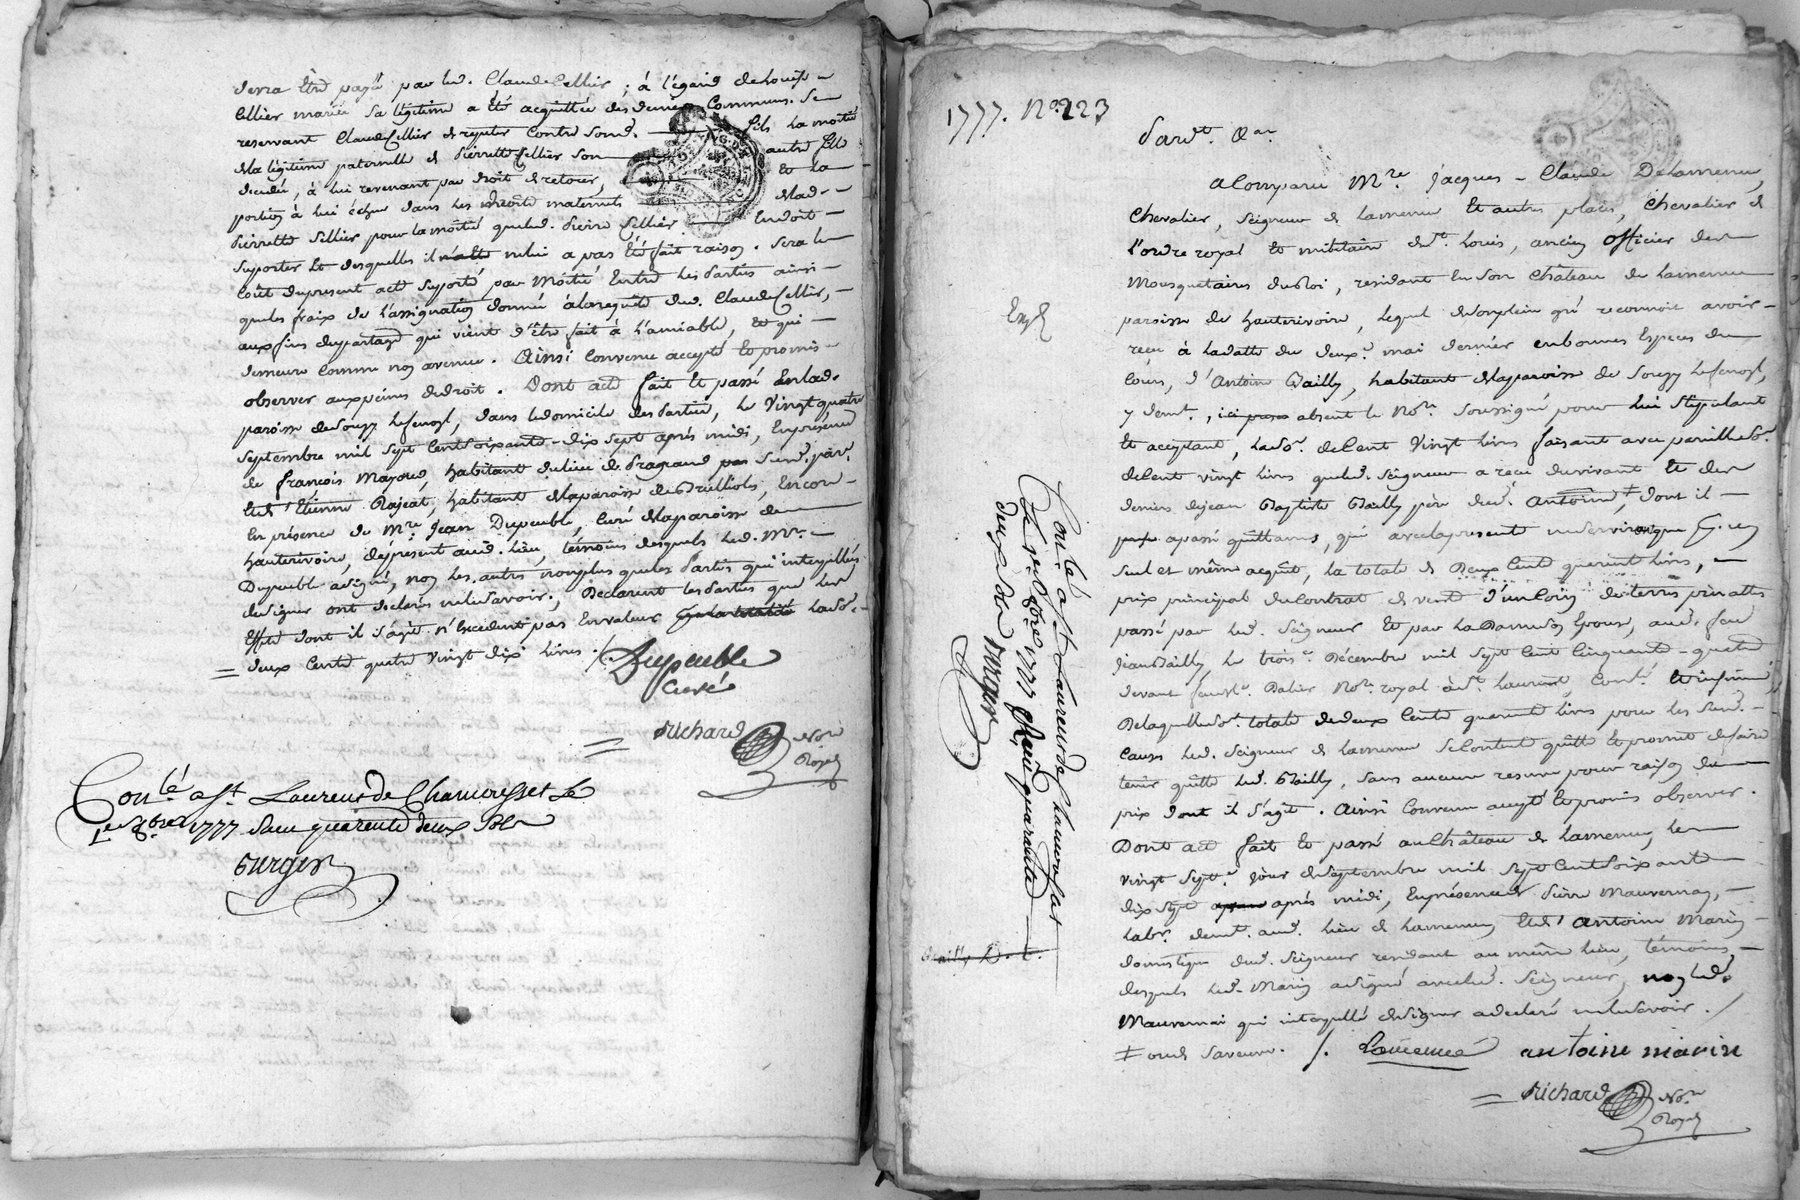 devra être payé par led. Claude Cellier ; à l'égard de Louise
Cellier mariée sa légitime a été acquittée des deniers communs. Se
reservant Claude Cellier de repeter contre sond. fils la moitié
de la légitime paternelle de Pierrette Cellier son autre fille
décédée, à lui revenant par droit de retour, et la
portion à lui échue dans les droits maternels de lad.
Pierrette Cellier pour la moitié que led. Pierre Cellier en doit
suporter et desquelles il ne lui a pas été fait raison. Sera le
coût du present acte suporté par moitié entre les parties ainsi
que les fraix de l'assignation donnée à la requête dud. Claude Cellier,
aux fins du partage qui vient d'être fait à l'amiable, et qui
demeure comme non avenue. Ainsi convenu accepté et promis
observer aux peines de droit. Dont acte fait et passé en lad.
paroisse de Souzy l'Argentière, dans le domicile des parties, le vingt quatre
septembre mil sept cent soixante-dix sept après midi, en présence
de françois Mayoud, habitant du lieu de
et d'Etienne Rajeat, habitant de la paroisse de Brullioles, encore
en présence de Mre. Jean Dupeuble, curé de la paroisse de
hauterivoire, de present aud. lieu, témoins desquels led. Mre.
Dupeuble a signé, non les autres non plus que les parties qui interpellés
de signer ont déclaré ne le savoir; Declarent les parties que les
effets dont il s'agit n'excedent pas en valeur la so.
deux cents quatre vingt dix livres ./.
Dupeuble
curé
Richard
Nore.
Royal
Conlé. a St. Laurent de Chamousset le
1er. 8bre. 1777 Reçu quarente deux sols
Durger
1777. No. 223
Pardt. &ar.
A Comparu Mre. Jacques-Claude Delamenue,
Chevalier, Seigneur de Lamenue et autres places, Chevalier de
l'ordre royal et militaire de St. Louis, ancien officier des
Mousquetaires du Roi, residant en son Château de Lamenue
paroisse de hauterivoire, lequel de son plein gré reconnoit avoir
reçu à la datte du deuxe. mai dernier en bonnes especes de
cours, d'Antoine Bailly, habitant de la paroisse de Souzy
y demt., absent le Nore. soussigné pour lui stipulant
et acceptant, la so. de cent vingt livres faisant avec pareille so.
de cent vingt livres que led. Seigneur a reçu du vivant et des
deniers de Jean Baptiste Bailly père dud. Antoine, ‡ dont il
a passé quittance, qui avec la presente ne servira que d'un
seul et même acquit, la totale de deux cents quarente livres,
prix principal du contrat de vente d'un coin de terre
passé par led. Seigneur et par la Dame son épouse, aud. feu
Jean Bailly le troise. Décembre mil sept cent cinquante-quatre
devant feu Me. Nore. royal à St. Laurent, Conlé. et insinué
De laquelle so. totale de deux cents quarente livres pour les susd.
causes led. Seigneur de Lamenue se contente quitte et promet de faire
tenir quitte led. Bailly, sans aucune reserve pour raison du
prix dont il s'agit. Ainsi convenu accepté et promis observer.
Dont acte fait et passé au Château de Lamenue, le
vingt septe. jour de septembre mil sept cent soixante
dix sept après midi, en présence de Pierre Mauvernay,
labr. demt. aud. lieu de Lamenue et d'Antoine Marin
domestique dud. Seigneur residant au même lieu, témoins
desquels led. Marin a signé avec led. Seigneur, non led.
Mauvernai qui interpellé de signer a declaré ne le savoir. /
‡ Lamenue antoine marin
Richard
Nore.
Royal
Expé
Conlé. a St. Laurent de Chamousset
le 1er. 8bre. 1777 Reçu quarante
deux sols Durger